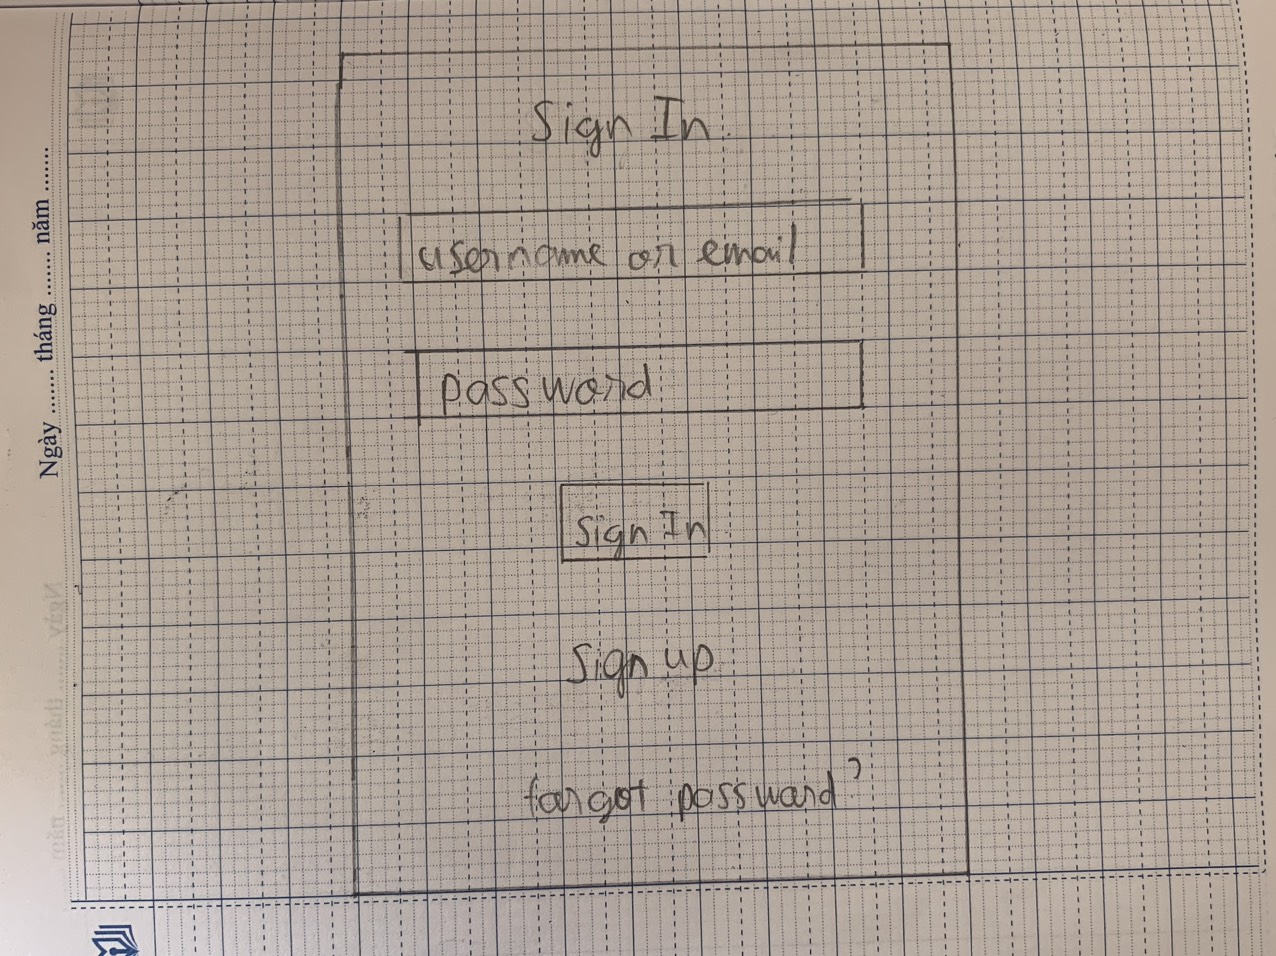 Ngày ....... tháng ........ năm .......
Sign In
username or email
password
Sign In
Sign up
forgot password?